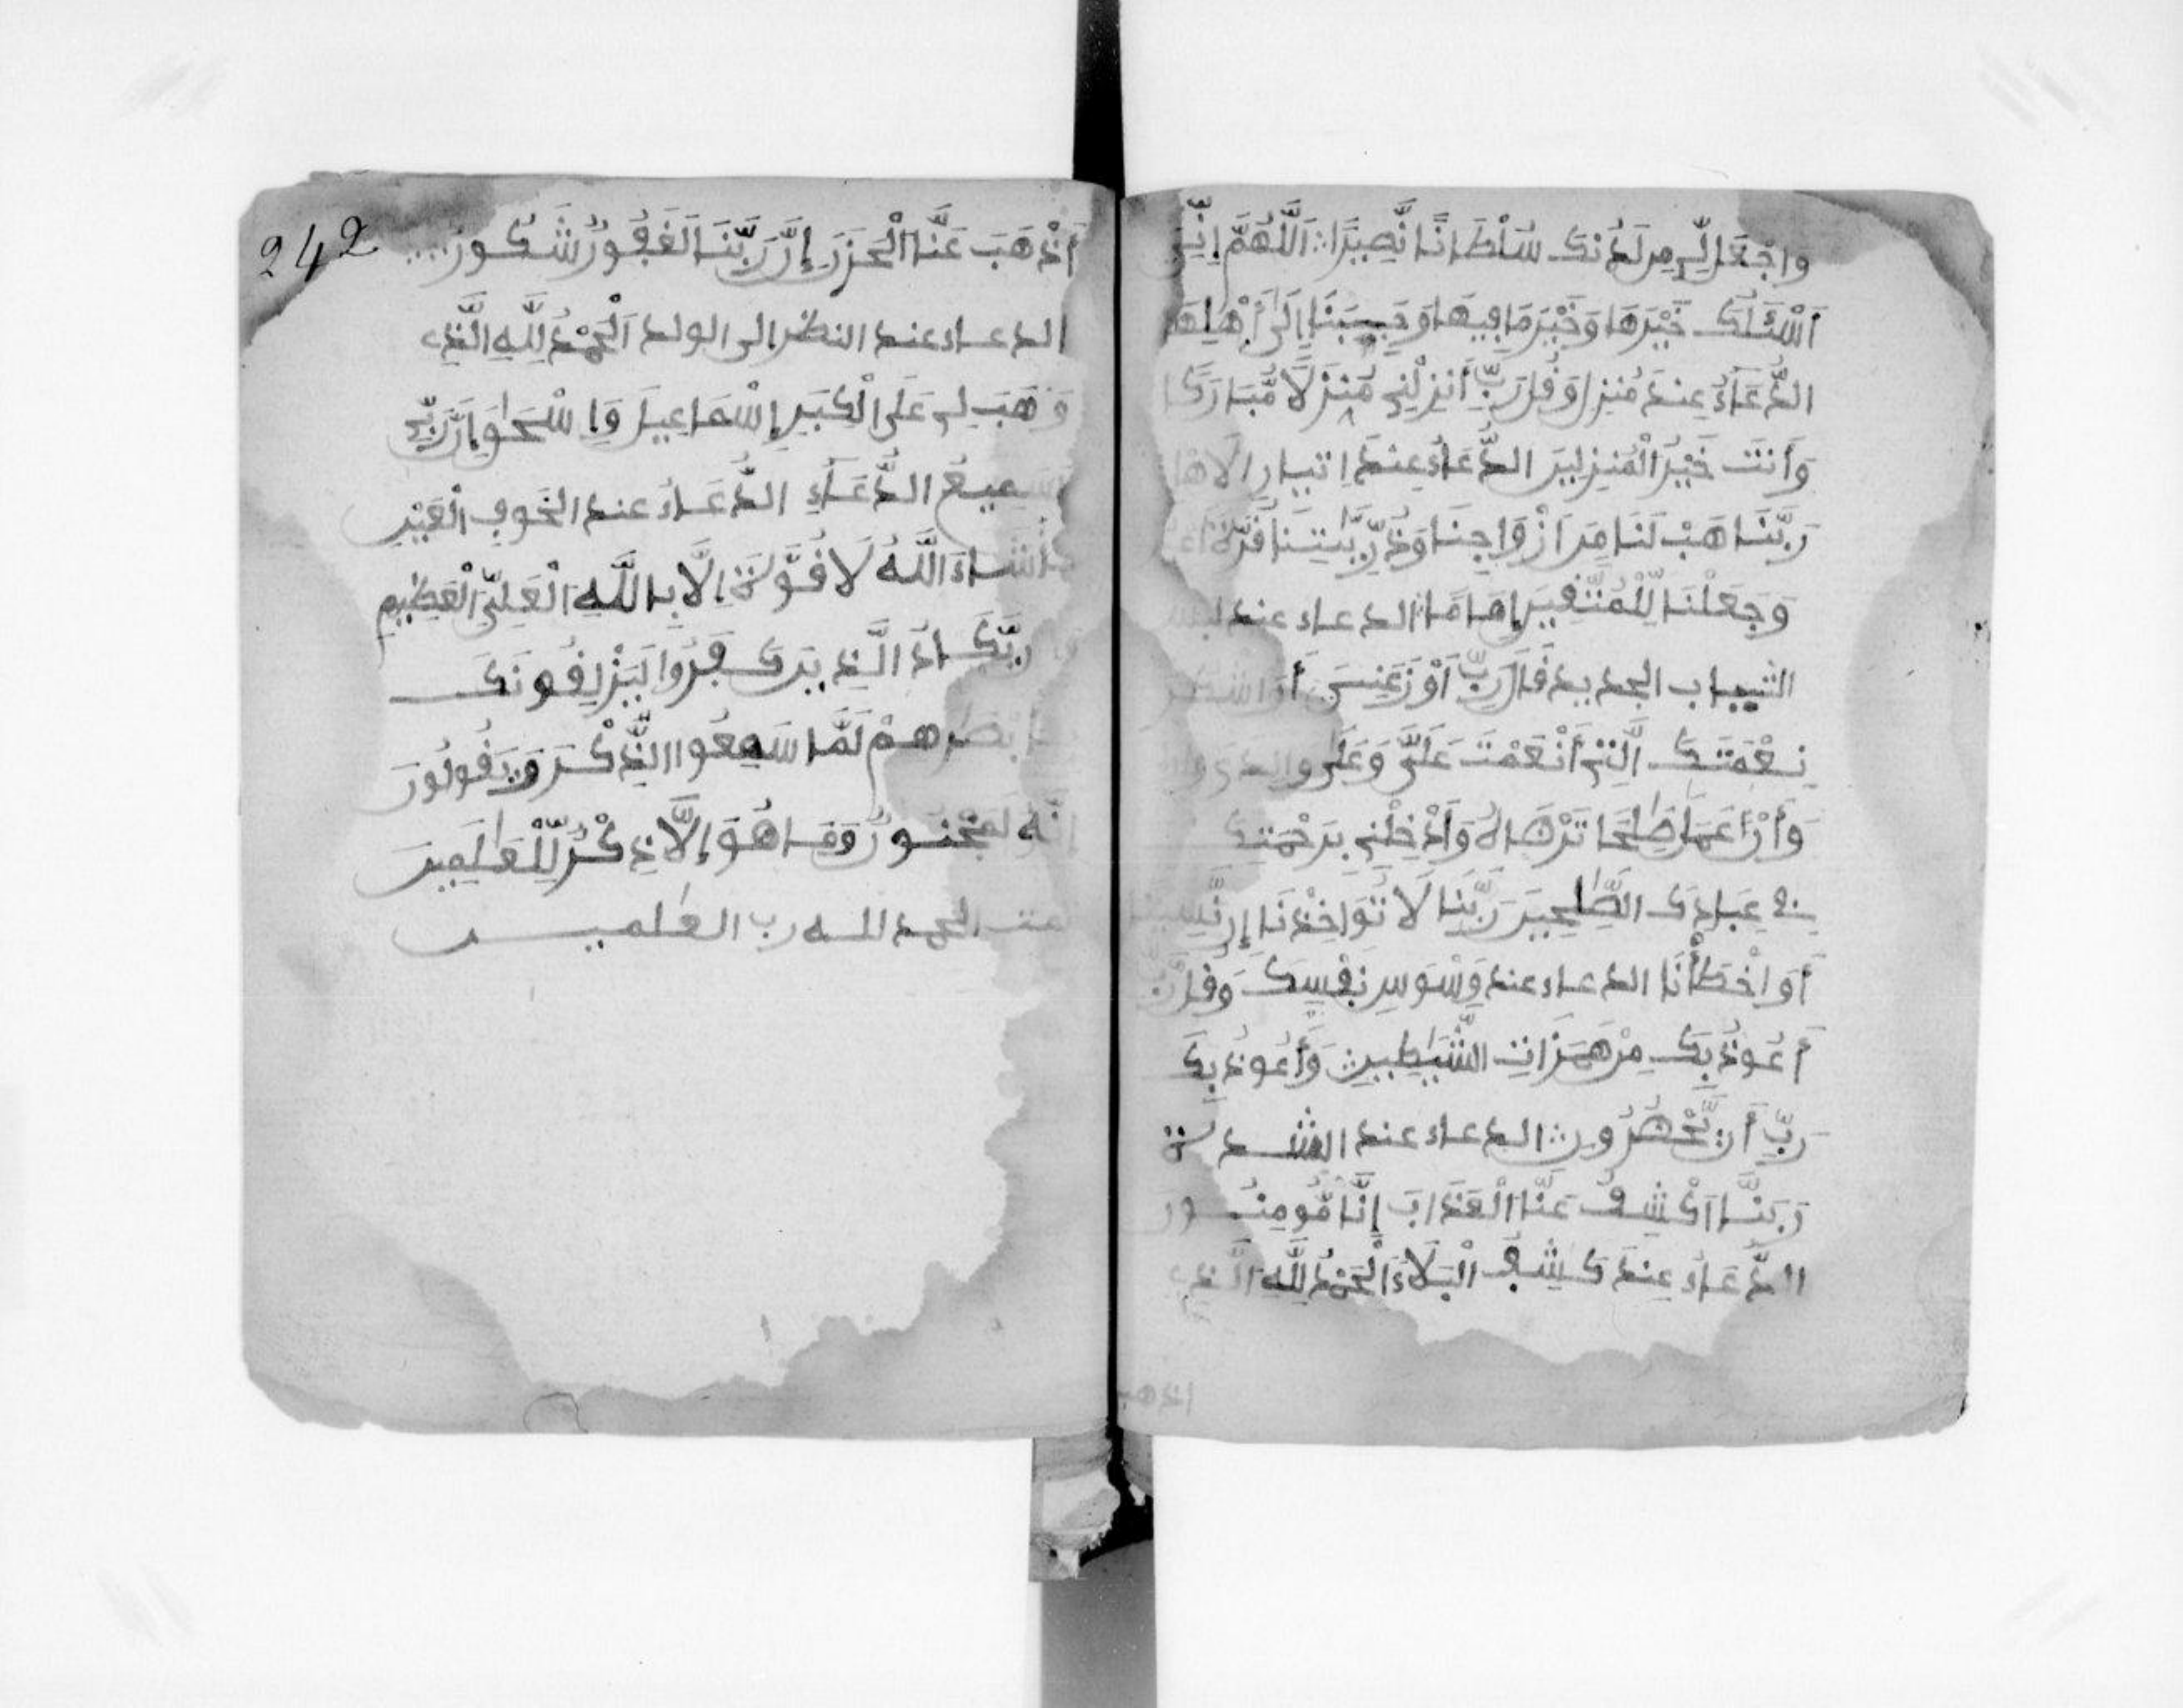 وَاجْعَل لِّي مِن لَّدُنكَ سُلْطَانًا نَّصِيرًا اَللَّهُمَّ إِنِّي
أَسْئَلُكَ خَيْرَهَا وَخَيْرَ مَا فِيهَا وَحَبِّبْنَا إِلَى أَهْلِهَا
الدُّعَاءُ عِندَ مُنزِل وَقُل رَّبِّ أَنزِلْنِي مُنزَلًا مُّبَارَكًا
وَأَنتَ خَيْرُ الْمُنزِلِينَ الدُّعَاءُ عِندَ اتيان الاهل
رَبَّنَا هَبْ لَنَا مِنَ اَزْوَاجِنَا وَذُرِّيَّٰتِنَا قُرَّةَ أَعْيُنٍ
وَجَعَلْنَا لِلْمُتَّقِينَ إِمَامًا الدعاء عند لبس
الثيياب الجديد قَالَ رَبِّ أَوْزِعْنِي أَنَ اشْكُرَ
نِعْمَتَكَ الَّتِي أَنْعَمْتَ عَلَيَّ وَعَلَى والدي وان
وَأَنْ أَعْمَلَ صَٰلِحًا تَرْضَاهُ وَأَدْخِلْنِي بِرَحْمَتِكَ
فِي عِبَادِكَ الصَّٰلِحِينَ رَبَّنَا لَا تُوَاخِذْنَا إِن نَّسِينَا
أَوَ اخْطَأْنَا الدعاء عند وَسْوَسِ نَفْسِكَ وَقُل رَّبِّ
أَعُوذُ بِكَ مِنْ هَمَزَاتِ الشَّيَٰطِينِ وَأَعُوذُ بِكَ
رَبِّ أَن يَّحْضُرُونِ الدعاء عند الشدة
رَبَّنَا اكْشِفْ عَنَّا الْعَذَابَ إِنَّا مُومِنُونَ
الدُّعَاءُ عِندَ كَشِفِ الْبَلَاءِ الْحَمْدُ لِلَّهِ الَّذِي
اذهب
242
أَذْهَبَ عَنَّا الْحَزَنَ إِنَّ رَبَّنَا لَغَفُورٌ شَكُورٌ
الدعاء عند النظر الى الولد اَلْحَمْدُ لِلَّهِ الَّذِي
وَهَبَ لِي عَلَى الْكِبَرِ إِسْمَاعِيلَ وَإِسْحَٰقَ إِنَّ رَبِّي
لَسَمِيعُ الدُّعَاءِ الدُّعَاءُ عند الخَوفِ الْعَيْنِ
مَا شَاءَ اللَّهُ لَا قُوَّةَ إِلَّا بِاللَّهِ الْعَلِيِّ الْعَظِيمِ
رَبُّكَ الَّذِينَ كَفَرُوا لَيَزْلِقُونَكَ
بِأَبْصَٰرِهِمْ لَمَّا سَمِعُوا الذِّكْرَ وَيَقُولُونَ
إِنَّهُ لَمَجْنُونٌ وَمَا هُوَ إِلَّا ذِكْرٌ لِّلْعَٰلَمِينَ
تمت الحمد لله رب العٰلمين